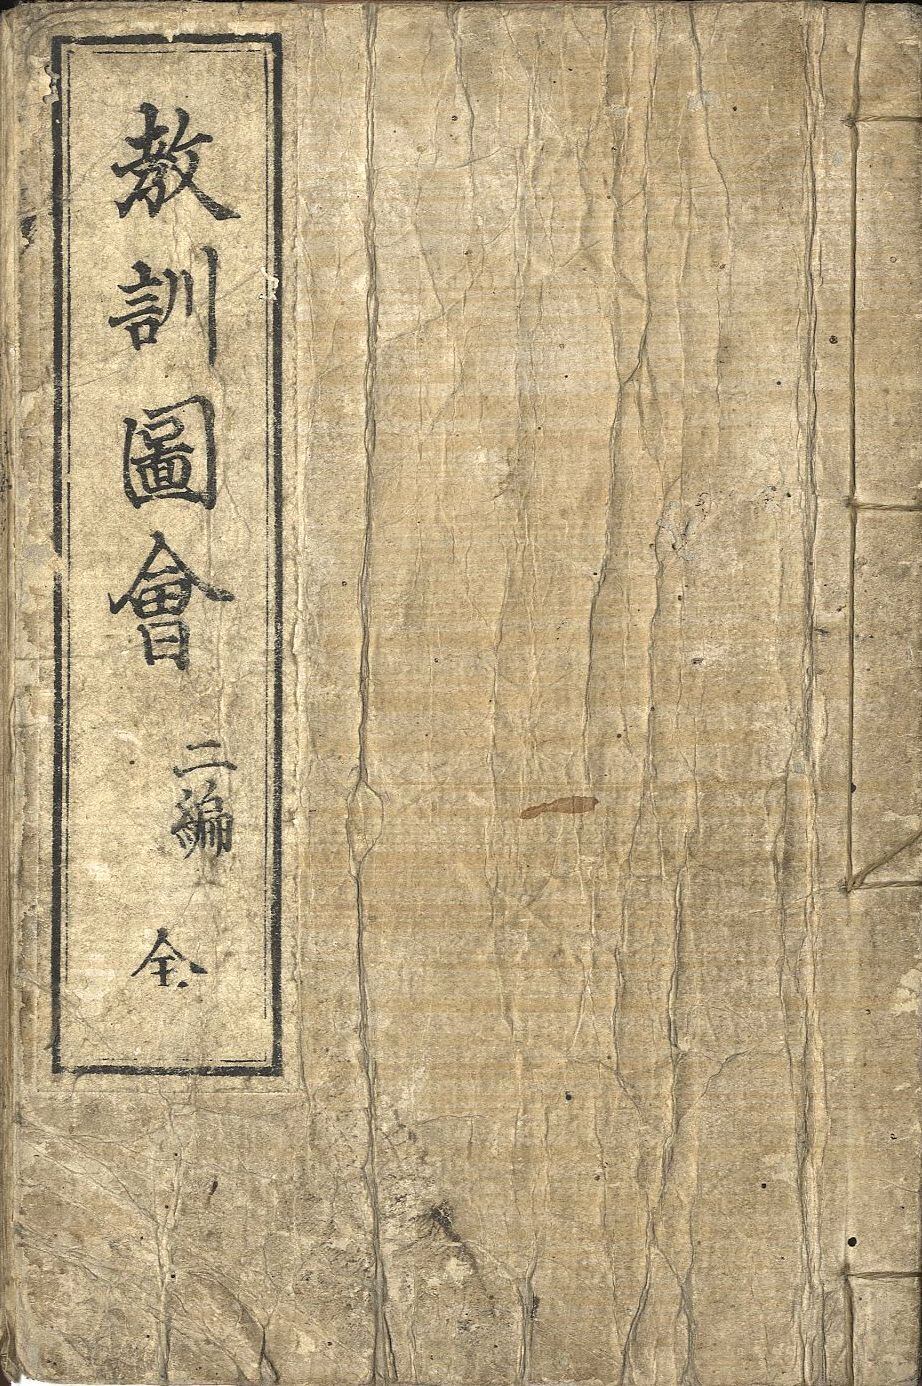 教訓圖會 二編 全